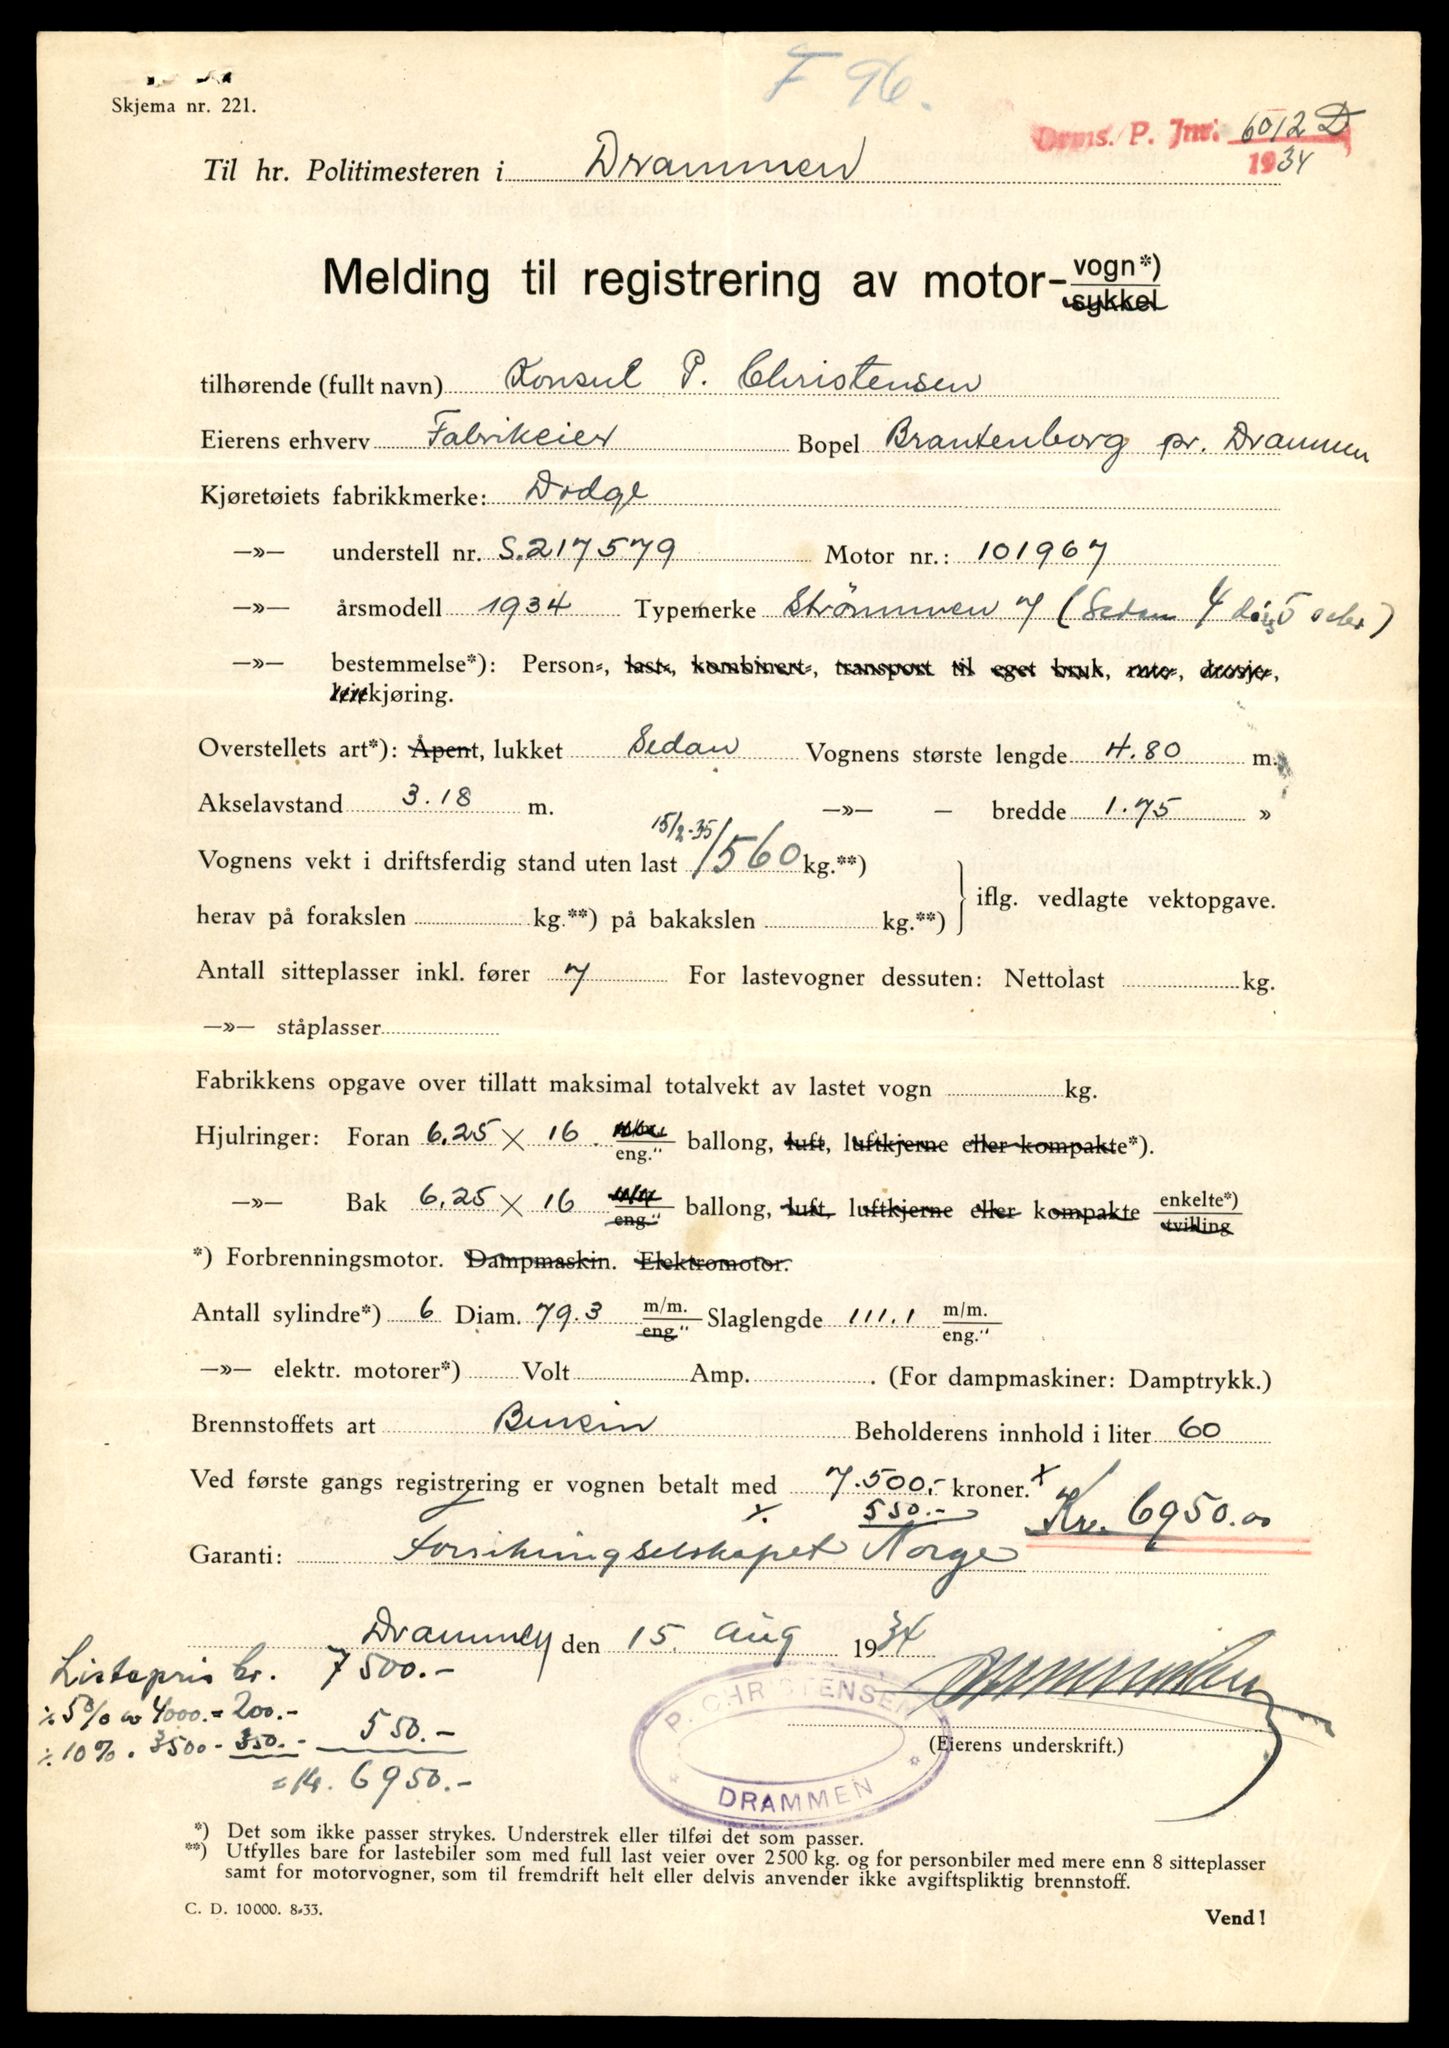 F 96.
Skjema nr. 221.
Drms. P. Jnr. 6012 D
1934
Til hr. Politimesteren i Drammen
Melding til registrering av motor- vogn*)
sykkel
tilhørende (fullt navn) Konsul P. Christensen
Eierens erhverv Fabrikeier Bopel Brantenborg pr. Drammen
Kjøretøiets fabrikkmerke: Dodge
—»— understell nr. S.217579 Motor nr.: 101967
—»— årsmodell 1934 Typemerke Strømmen 7 (Sedan 4 dørs
—»— bestemmelse*): Person-, last-, kombinert-, transport til eget bruk, rute-, drosje-,
leiekjøring.
Overstellets art*): Åpent, lukket Sedan Vognens største lengde 4.80 m.
Akselavstand 3.18 m. —»— — bredde 1.75 »
15/2-35
Vognens vekt i driftsferdig stand uten last 1560 kg.**)
herav på forakslen kg.**) på bakakslen kg.**) iflg. vedlagte vektopgave.
Antall sitteplasser inkl. fører 7 For lastevogner dessuten: Nettolast kg.
—»— ståplasser
Fabrikkens opgave over tillatt maksimal totalvekt av lastet vogn kg.
Hjulringer: Foran 6.25 × 16 m/m. eng." ballong, luft, luftkjerne eller kompakte*).
—»— Bak 6.25 × 16 m/m eng." ballong, luft, luftkjerne eller kompakte enkelte*) tvilling
*) Forbrenningsmotor. Dampmaskin. Elektromotor.
Antall sylindre*) 6 Diam. 79.3 m/m. eng." Slaglengde 111.1 m/m. eng."
—»— elektr. motorer*) Volt Amp. . (For dampmaskiner: Damptrykk.)
Brennstoffets art Bensin Beholderens innhold i liter 60
Ved første gangs registrering er vognen betalt med 7.500.- kroner. x
x. 550.- Kr. 6950.00
Garanti: Forsikringselskapet Norge
Drammen den 15. aug 1934
Listepris kr. 7500.-
÷ 5% av 4000.- = 200.-
÷ 10% . 3500 - 350.- 550.-
= kr. 6950.-
P. CHRISTENSEN
DRAMMEN
(Eierens underskrift.)
*) Det som ikke passer strykes. Understrek eller tilføi det som passer.
**) Utfylles bare for lastebiler som med full last veier over 2500 kg. og for personbiler med mere enn 8 sitteplasser
samt for motorvogner, som til fremdrift helt eller delvis anvender ikke avgiftspliktig brennstoff.
C. D. 10000. 8-33.
Vend!